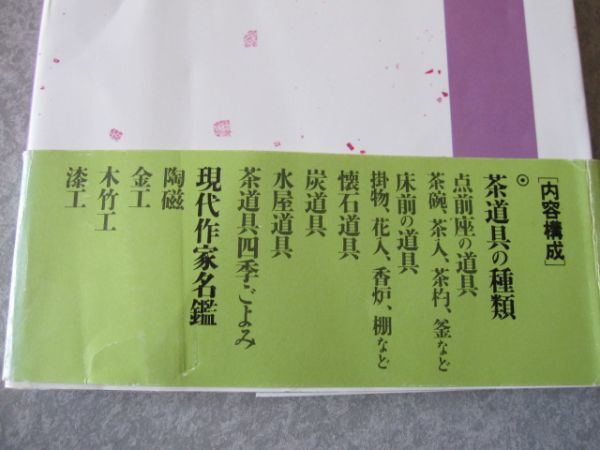 ［内容構成］
◉
茶道具の種類
点前座の道具
茶碗、茶入、茶杓、釜など
床前の道具
掛物、花入、香炉、棚など
懐石道具
炭道具
水屋道具
茶道具四季ごよみ
現代作家名鑑
陶磁
金工
木竹工
漆工